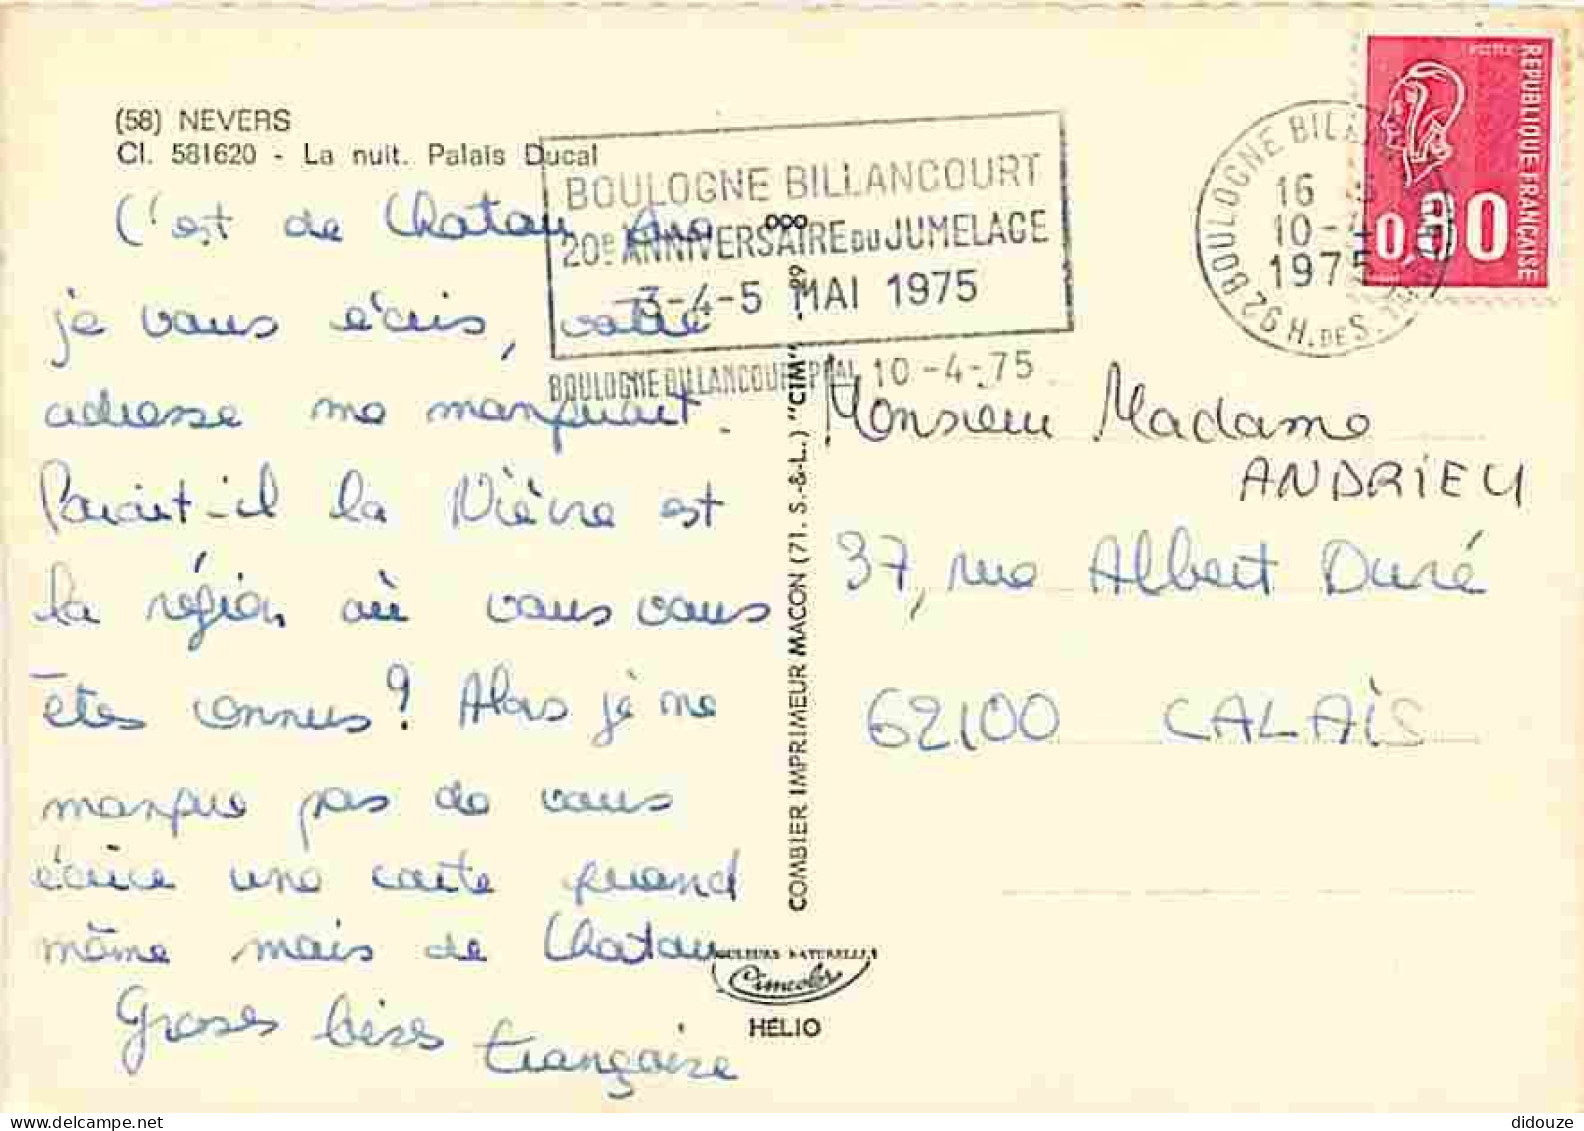 (58) NEVERS
Cl. 581620 - La nuit. Palais Ducal
C'est de Chatou que
je vous écris, votre
adresse me manquait.
Parait-il la Nièvre est
la région où vous vous
êtes connus ? Alors je ne
manque pas de vous
écrire une carte quand
même mais de Chatou
Grosses bises Françoise
BOULOGNE BILLANCOURT
20e ANNIVERSAIRE DU JUMELAGE
3-4-5 MAI 1975
BOULOGNE BILLANCOURT PPAL 10-4-75
COMBIER IMPRIMEUR MACON (71. S.-&-L.) "CIM"
COULEURS NATURELLES
Cimcolor
HÉLIO
92 BOULOGNE BILLANCOURT
H. DE S.
16
10-4
1975
POSTES
REPUBLIQUE FRANÇAISE
0,80
Monsieur Madame
ANDRIEU
37, rue Albert Duré
62100 CALAIS
didouze